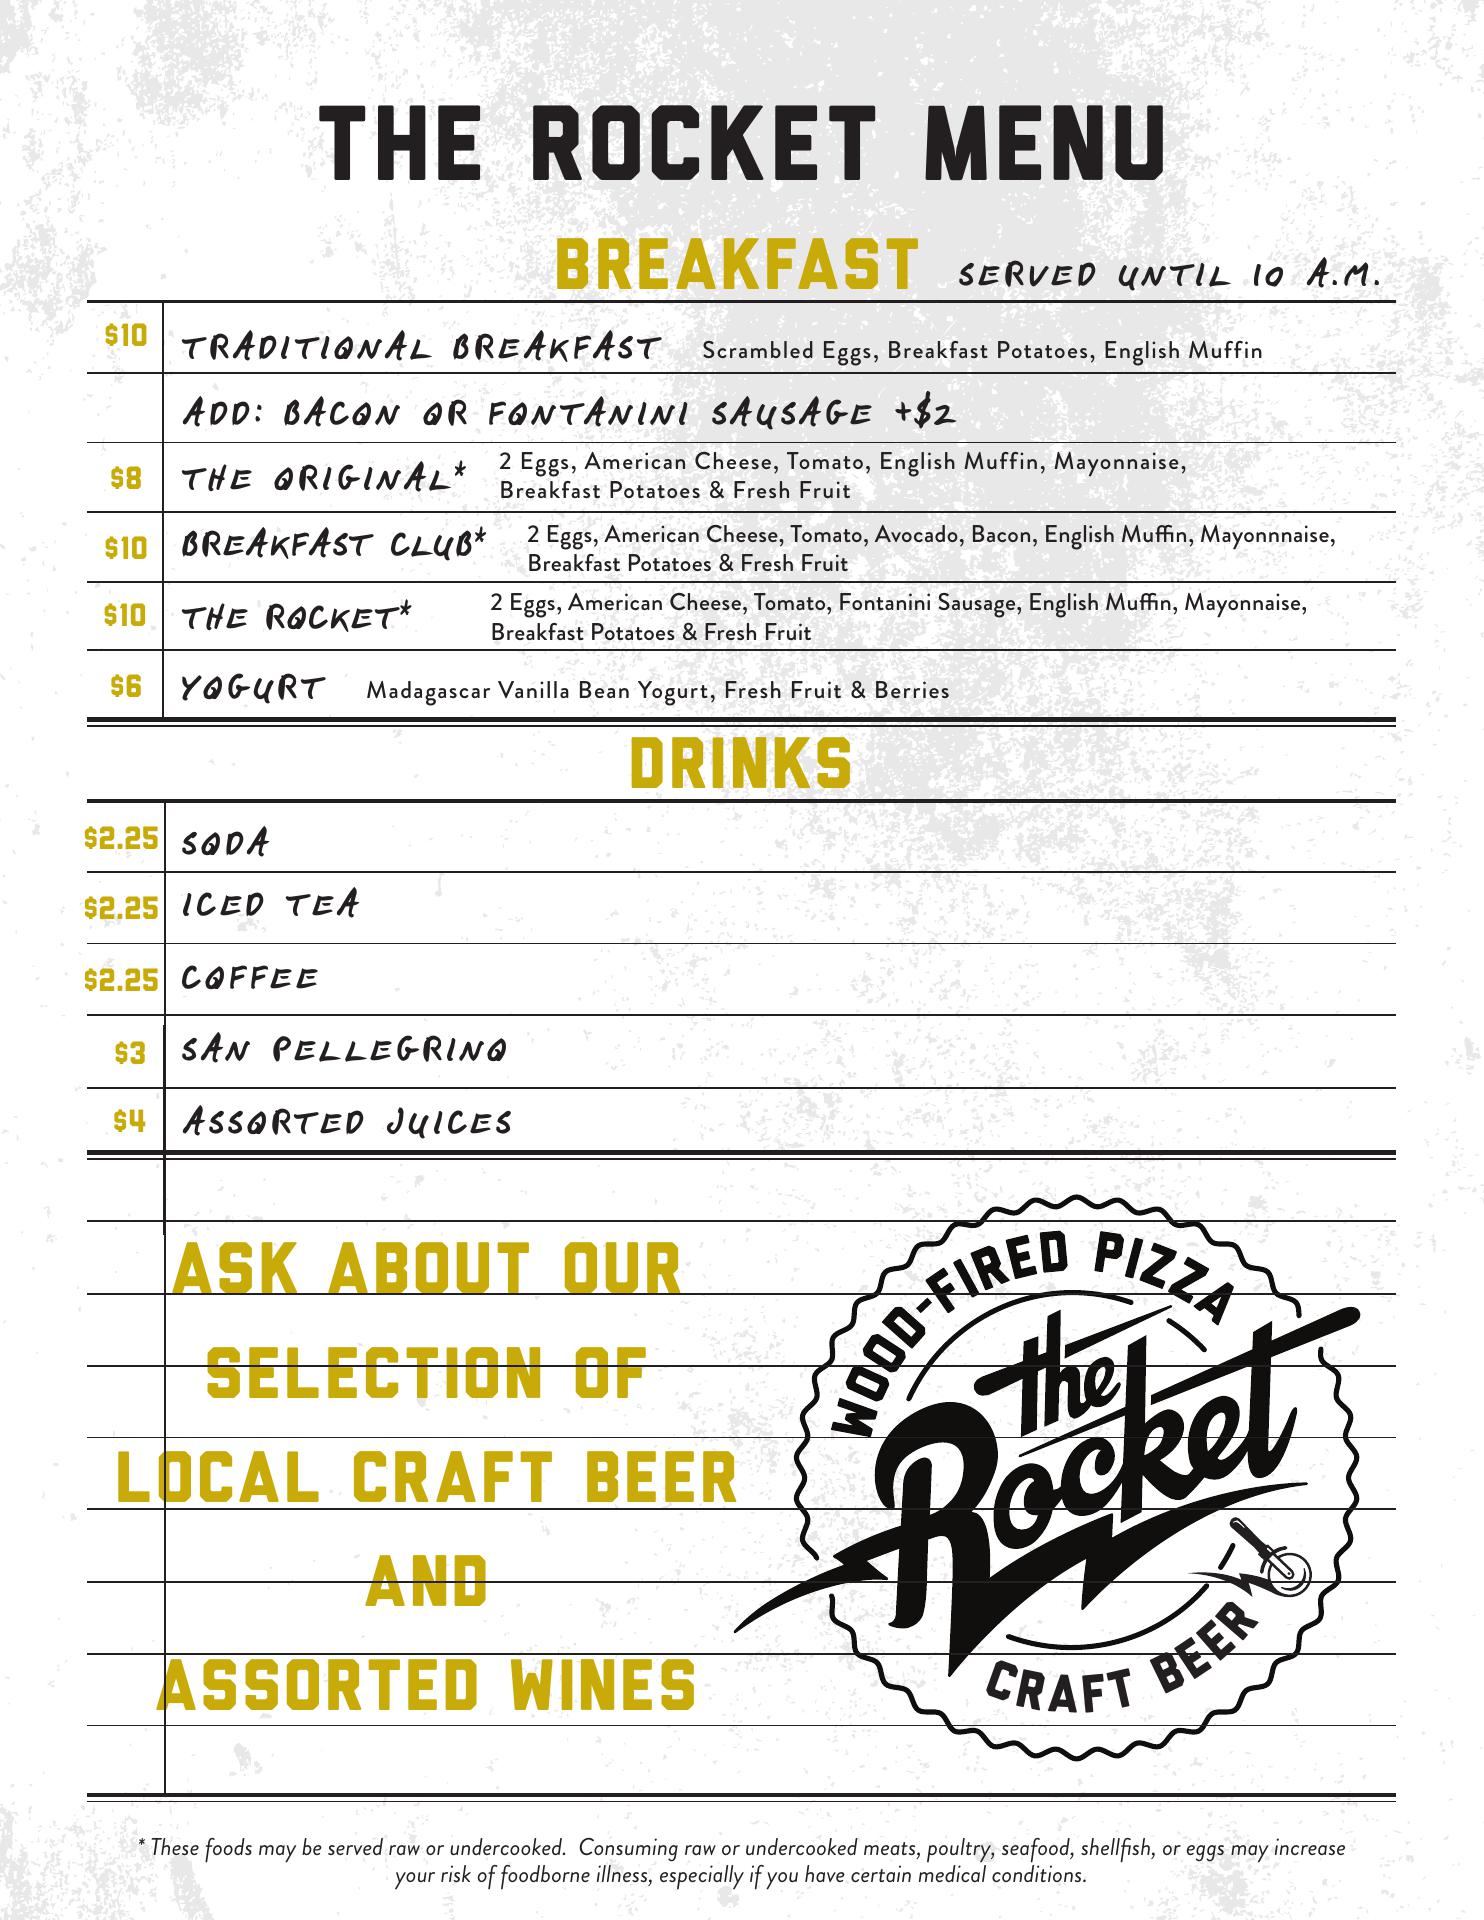 THE ROCKET MENU
BREAKFAST SERVED UNTIL 10 A.M.
$10 TRADITIONAL BREAKFAST Scrambled Eggs, Breakfast Potatoes, English Muffin
ADD: BACON OR FONTANINI SAUSAGE +$2
$8 THE ORIGINAL* 2 Eggs, American Cheese, Tomato, English Muffin, Mayonnaise,
Breakfast Potatoes & Fresh Fruit
$10 BREAKFAST CLUB* 2 Eggs, American Cheese, Tomato, Avocado, Bacon, English Muffin, Mayonnnaise,
Breakfast Potatoes & Fresh Fruit
$10 THE ROCKET* 2 Eggs, American Cheese, Tomato, Fontanini Sausage, English Muffin, Mayonnaise,
Breakfast Potatoes & Fresh Fruit
$6 YOGURT Madagascar Vanilla Bean Yogurt, Fresh Fruit & Berries
DRINKS
$2.25 SODA
$2.25 ICED TEA
$2.25 COFFEE
$3 SAN PELLEGRINO
$4 ASSORTED JUICES
ASK ABOUT OUR
SELECTION OF
LOCAL CRAFT BEER
AND
ASSORTED WINES
WOOD-FIRED PIZZA
the
Rocket
CRAFT BEER
* These foods may be served raw or undercooked. Consuming raw or undercooked meats, poultry, seafood, shellfish, or eggs may increase
your risk of foodborne illness, especially if you have certain medical conditions.